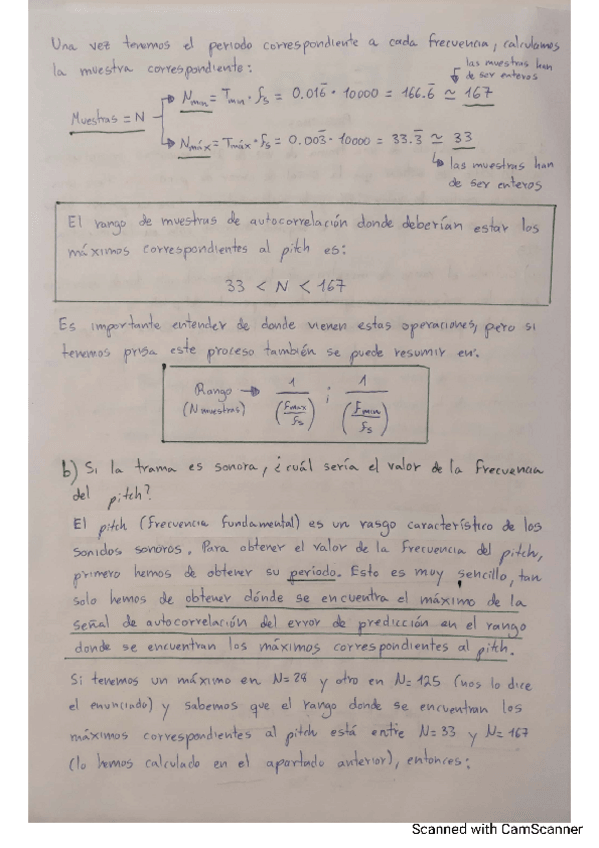 Una vez tenemos el periodo correspondiente a cada frecuencia, calculamos
la muestra correspondiente:
las muestras han
de ser enteros
Muestras = N
Nmin = Tmin · fs = 0.016̅ · 10000 = 166.6̅ ≃ 167
Nmáx = Tmáx · fs = 0.003̅ · 10000 = 33.3̅ ≃ 33
las muestras han
de ser enteros
El rango de muestras de autocorrelación donde deberían estar los
máximos correspondientes al pitch es:
33 < N < 167
Es importante entender de donde vienen estas operaciones, pero si
tenemos prisa este proceso también se puede resumir en:
Rango → 1/(Fmax/fs) ; 1/(Fmin/fs)
(N muestras)
b) Si la trama es sonora, ¿cuál sería el valor de la frecuencia
del pitch?
El pitch (frecuencia fundamental) es un rasgo característico de los
sonidos sonoros. Para obtener el valor de la frecuencia del pitch,
primero hemos de obtener su periodo. Esto es muy sencillo, tan
solo hemos de obtener dónde se encuentra el máximo de la
señal de autocorrelación del error de predicción en el rango
donde se encuentran los máximos correspondientes al pitch.
Si tenemos un máximo en N=28 y otro en N=125 (nos lo dice
el enunciado) y sabemos que el rango donde se encuentran los
máximos correspondientes al pitch está entre N=33 y N=167
(lo hemos calculado en el apartado anterior), entonces:
Scanned with CamScanner